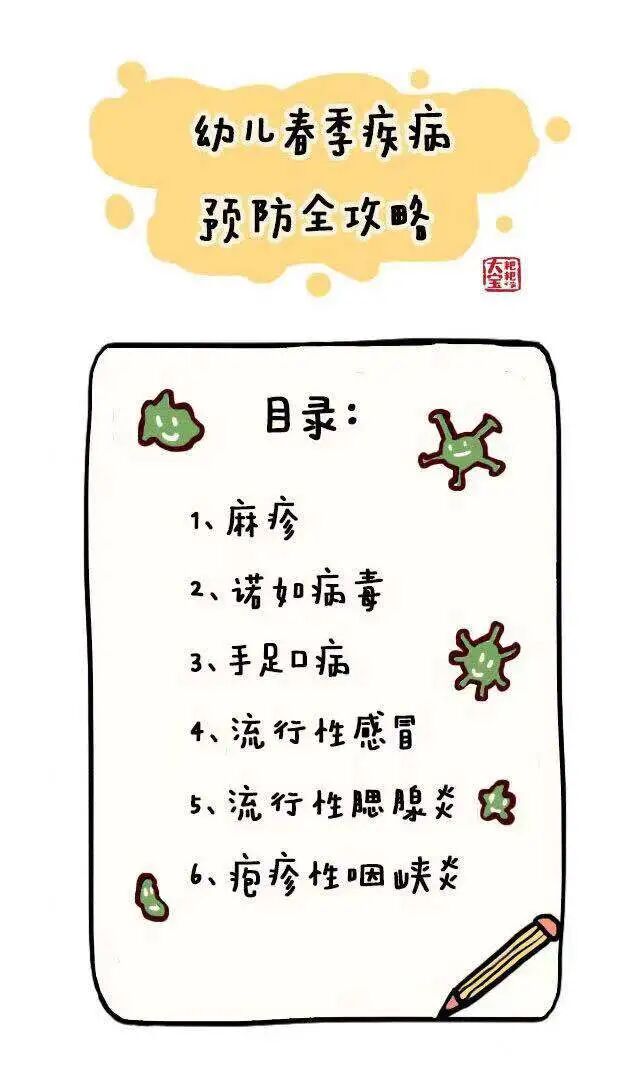 幼儿春季疾病
预防全攻略
大宝
目录：
1、麻疹
2、诺如病毒
3、手足口病
4、流行性感冒
5、流行性腮腺炎
6、疱疹性咽峡炎